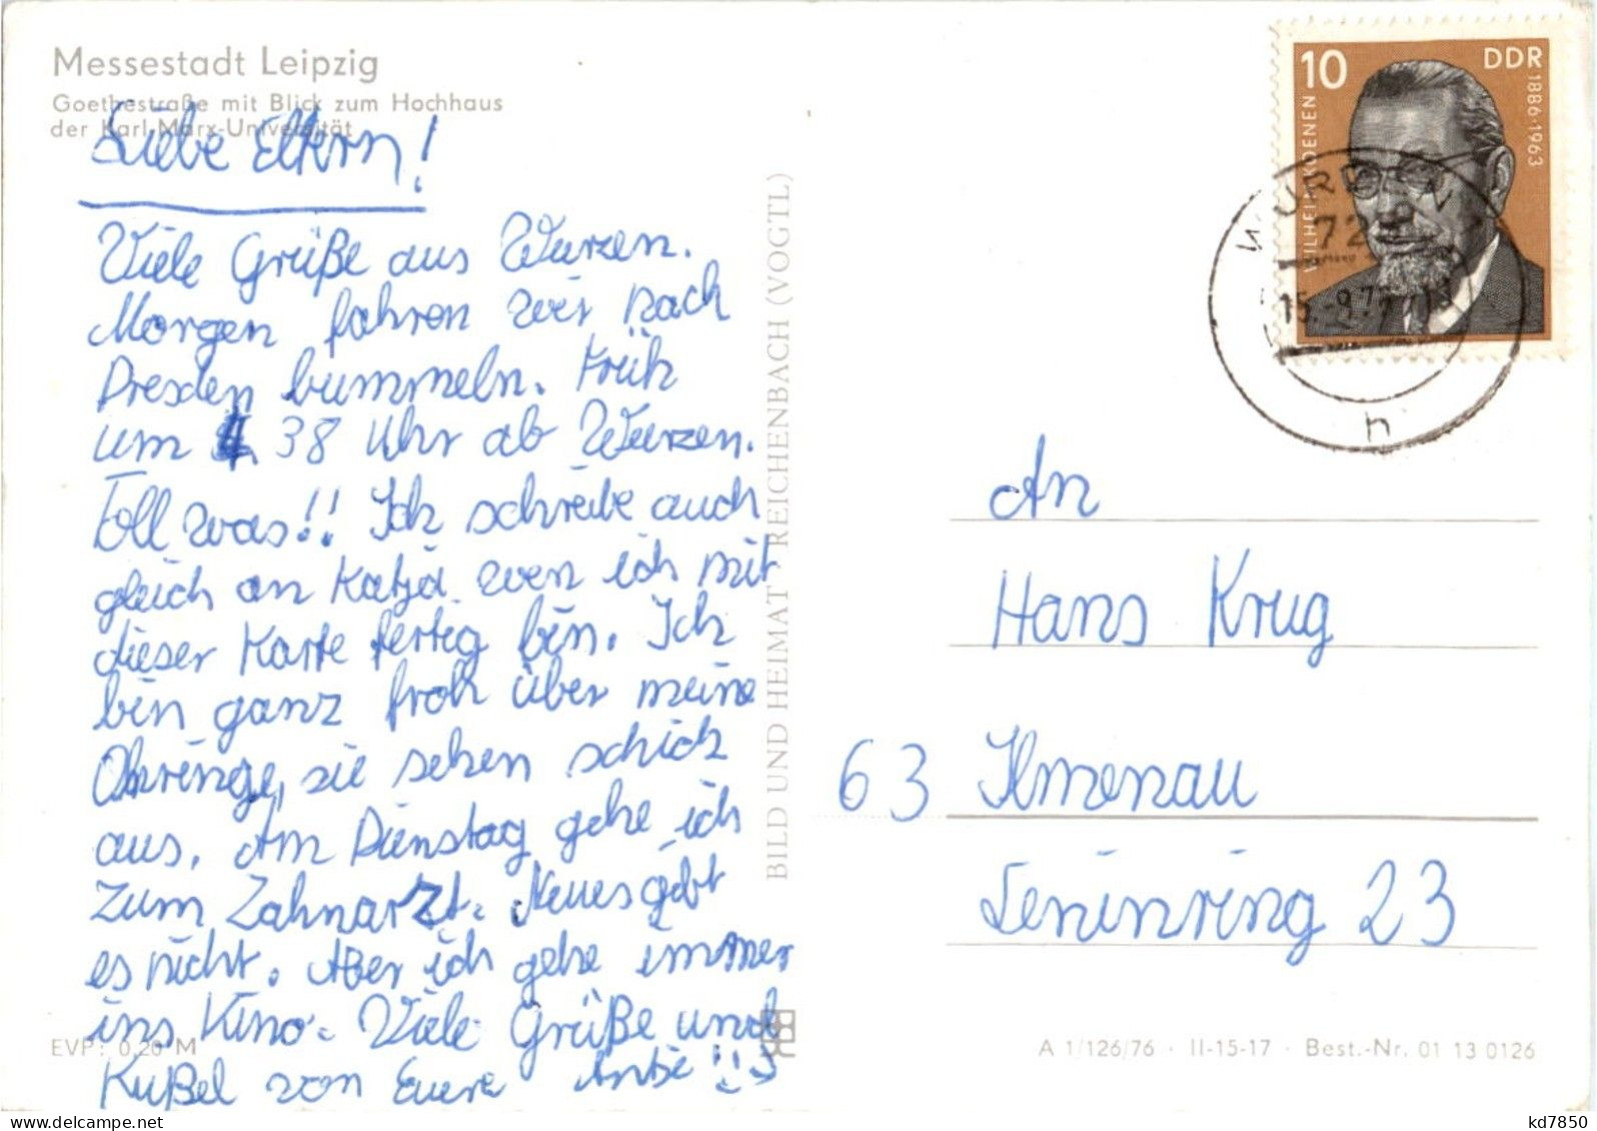 Messestadt Leipzig
Goethestraße mit Blick zum Hochhaus
der Karl-Marx-Universität
Liebe Eltern!
Viele Grüße aus Wurzen.
Morgen fahren wir nach
Dresden bummeln. Früh
um 4.38 Uhr ab Wurzen.
Toll was!! Ich schreibe auch
gleich an Katja wen ich mit
dieser Karte fertig bin. Ich
bin ganz froh über meine
Ohrringe, sie sehen schick
aus. Am Dienstag gehe ich
zum Zahnarzt. Neues gibt
es nicht. Aber ich gehe immer
ins Kino. Viele Grüße und
Küßel von Eure Antje !!
EVP: 0,20 M
BILD UND HEIMAT REICHENBACH (VOGTL)
10
DDR
WILHELM KOENEN
1886·1963
WURZEN
72
15.-9.77
h
An
Hans Krug
63 Ilmenau
Leninring 23
A 1/126/76 · II-15-17 · Best.-Nr. 01 13 0126
kd7850